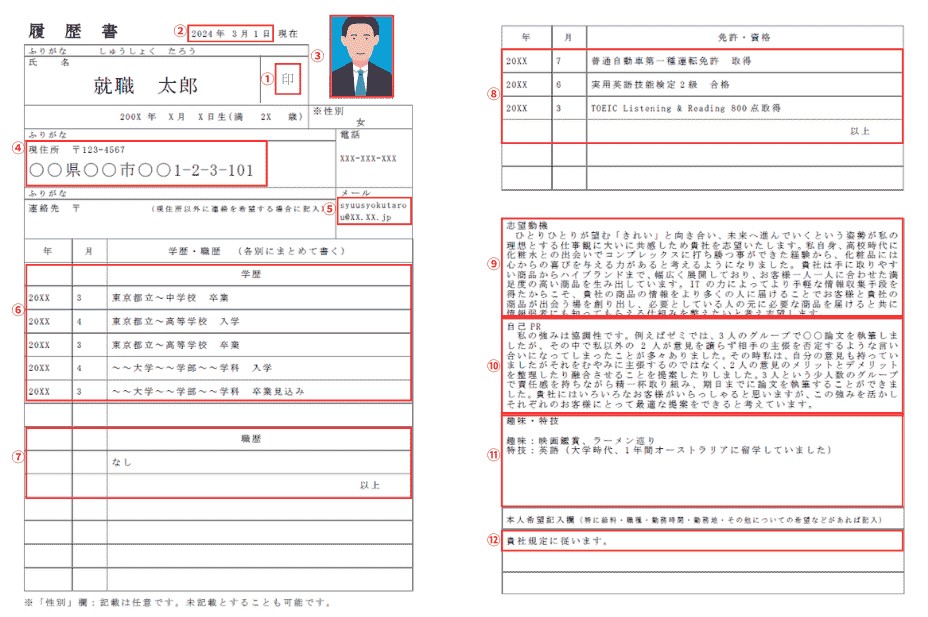 履歴書
② 2024年 3月1日 現在
ふりがな しゅうしょく たろう
③
氏 名
就職 太郎
① 印
200X 年 X月 X日生(満 2X 歳)
※性別
女
ふりがな
電話
④ 現住所 〒123-4567
XXX-XXX-XXX
〇〇県〇〇市〇〇1-2-3-101
ふりがな
メール
連絡先 〒 (現住所以外に連絡を希望する場合に記入)
⑤ syuusyokutaro
u@XX.XX.jp
年 月 学歴・職歴 (各別にまとめて書く)
学歴
20XX 3 東京都立～中学校 卒業
⑥ 20XX 4 東京都立～高等学校 入学
20XX 3 東京都立～高等学校 卒業
20XX 4 ～～大学～～学部～～学科 入学
20XX 3 ～～大学～～学部～～学科 卒業見込み
職歴
⑦ なし
以上
※「性別」欄：記載は任意です。未記載とすることも可能です。
年 月 免許・資格
20XX 7 普通自動車第一種運転免許 取得
⑧ 20XX 6 実用英語技能検定2級 合格
20XX 3 TOEIC Listening & Reading 800点取得
以上
志望動機
ひとりひとりが望む「きれい」と向き合い、未来へ進んでいくという姿勢が私の
理想とする仕事観に大いに共感したため貴社を志望いたします。私自身、高校時代に
化粧水との出会いでコンプレックスに打ち勝つ事ができた経験から、化粧品には
⑨ 心からの喜びを与える力があると考えるようになりました。貴社は手に取りやす
い商品からハイブランドまで、幅広く展開しており、お客様一人一人に合わせた満
足度の高い商品を生み出しています。ITの力によってより手軽な情報収集手段を
得たからこそ、貴社の商品の情報をより多くの人に届けることでお客様と貴社の
商品が出会う場を創り出し、必要としている人の元に必要な商品を届けると共に
情報弱者にも知ってもらえる仕組みを整えたいと考え志望します。
自己PR
私の強みは協調性です。例えばゼミでは、3人のグループで〇〇論文を執筆しま
したが、その中で私以外の 2 人が意見を譲らず相手の主張を否定するような言い
合いになってしまったことが多々ありました。その時私は、自分の意見も持ってい
⑩ ましたがそれをむやみに主張するのではなく、2人の意見のメリットとデメリット
を整理したり融合させることを提案したりしました。3人という少人数のグループ
で責任感を持ちながら精一杯取り組み、期日までに論文を執筆することができま
した。貴社にはいろいろなお客様がいらっしゃると思いますが、この強みを活かし
それぞれのお客様にとって最適な提案をできると考えています。
趣味・特技
趣味：映画鑑賞、ラーメン巡り
⑪ 特技：英語（大学時代、1年間オーストラリアに留学していました）
本人希望記入欄（特に給料・職種・勤務時間・勤務地・その他についての希望などがあれば記入）
⑫ 貴社規定に従います。